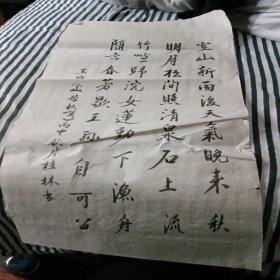 空山新雨後天氣晚来秋
明月松间照清泉石上流
竹喧歸浣女蓮動下漁舟
随意春芳歇王孙自可留
王 桂林书